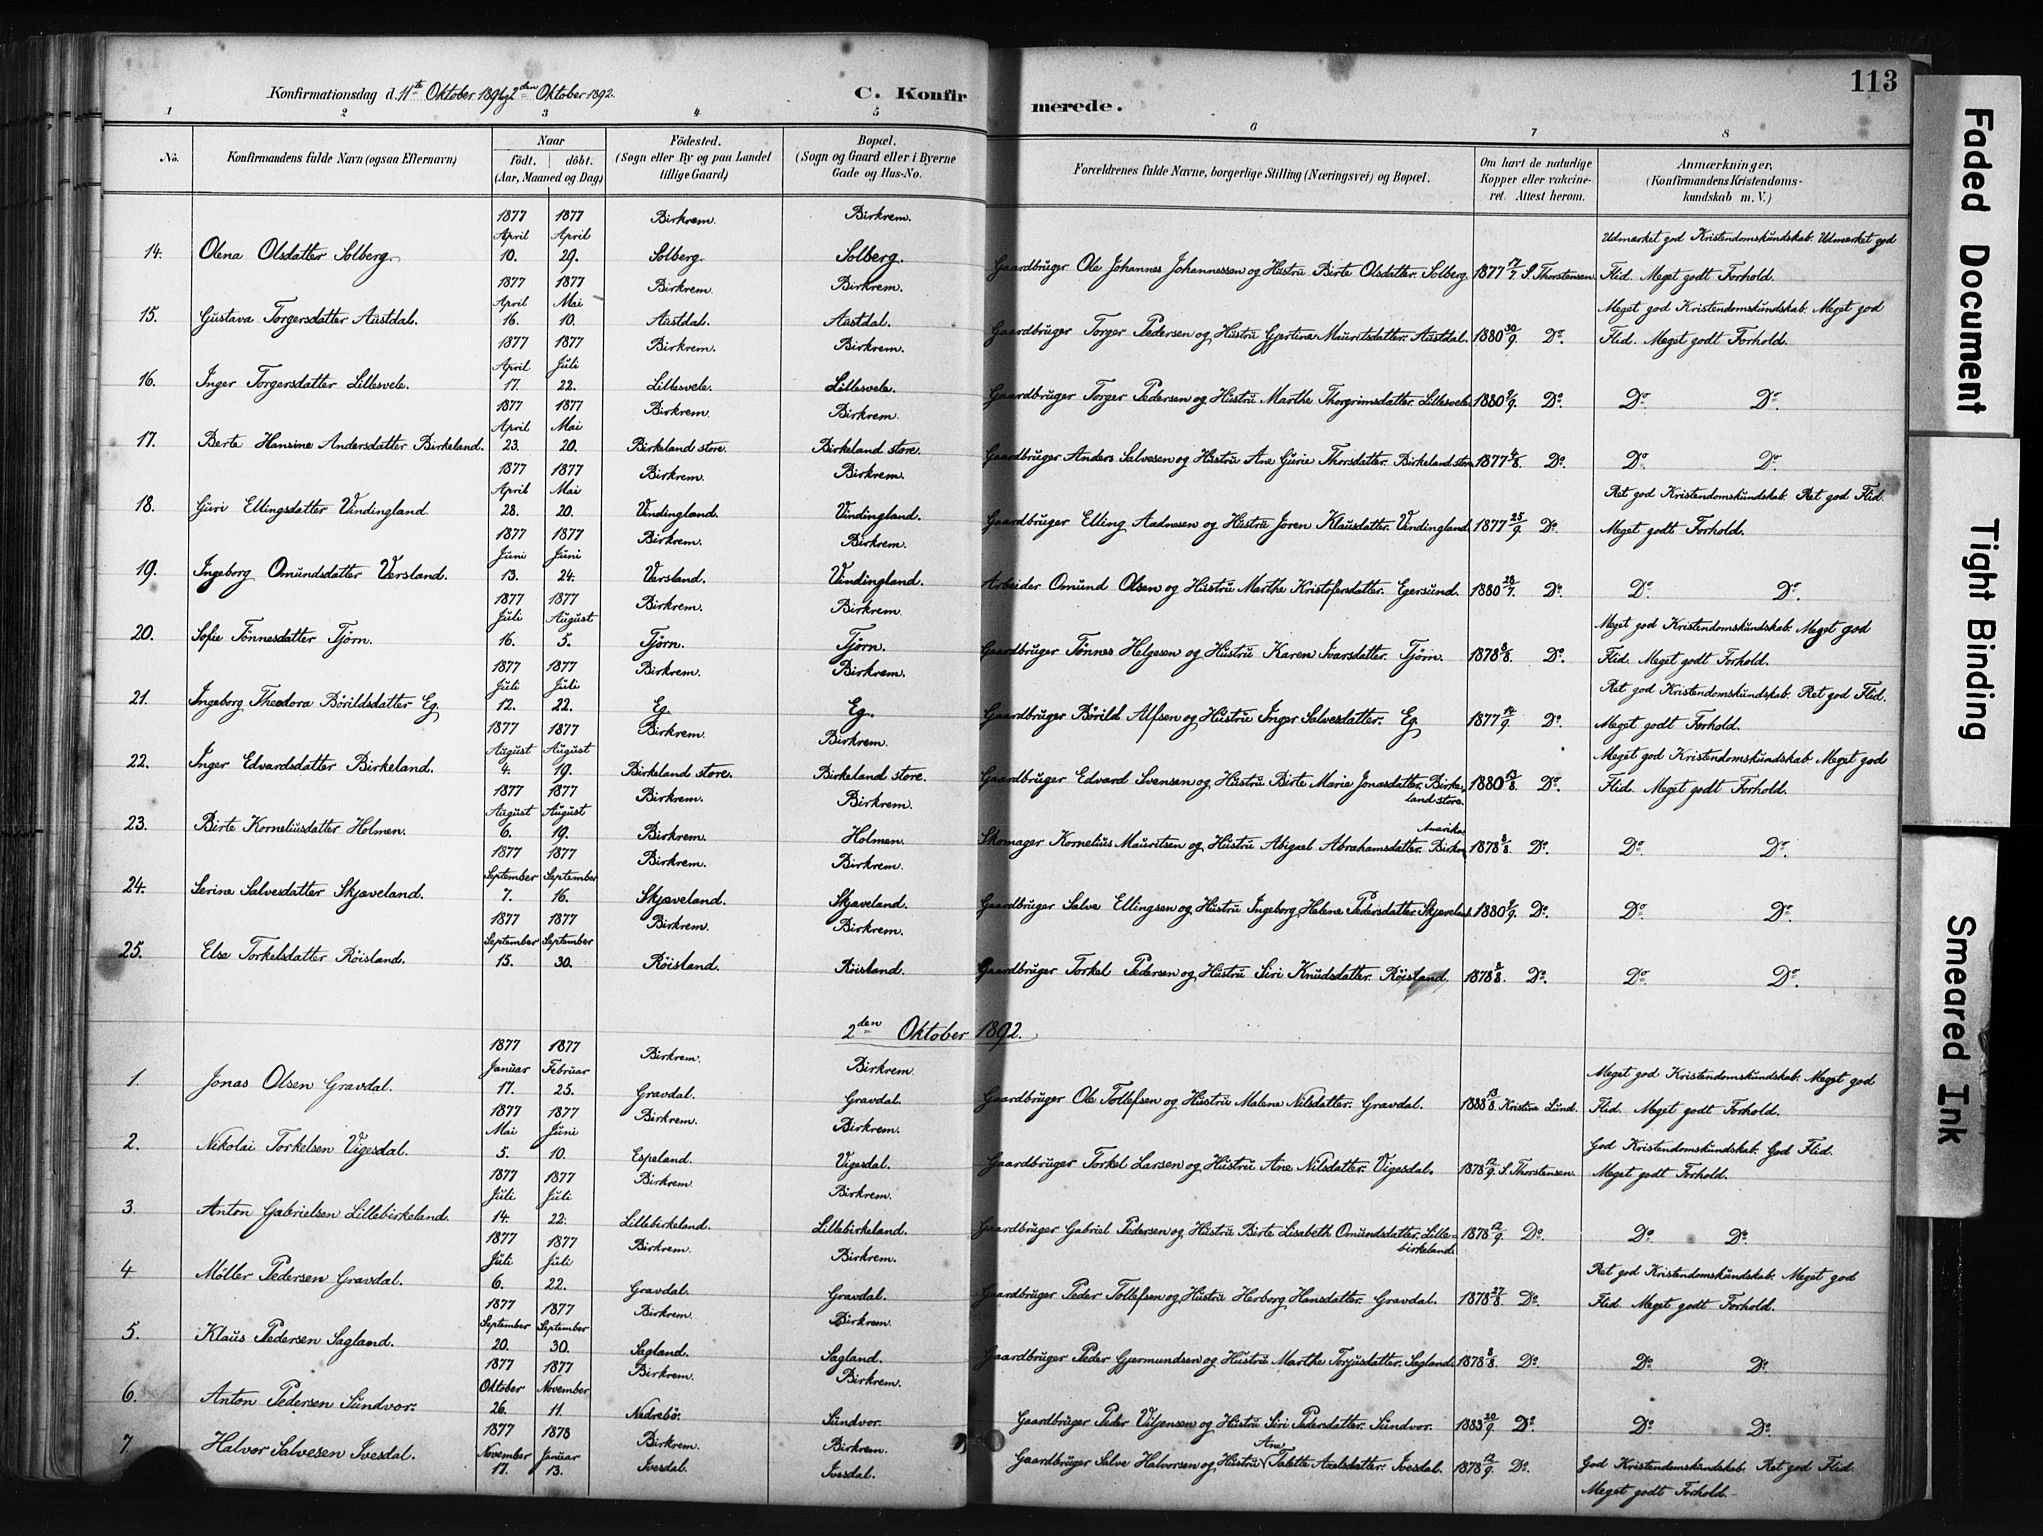 Konfirmationsdag d. 11te Oktober 1891 og 2den Oktober 1892.
C. Konfirmerede.
113
1 2 3 4 5 6 7 8
No.
Konfirmandens fulde Navn (ogsaa Efternavn)
Naar
födt. döbt.
(Aar, Maaned og Dag)
Födested.
(Sogn eller By og paa Landet
tillige Gaard)
Bopæl.
(Sogn og Gaard eller i Byerne
Gade og Hus-No.
Forældrenes fulde Navne, borgerlige Stilling (Næringsvei) og Bopæl.
Om havt de naturlige
Kopper eller vakcine-
ret. Attest herom.
Anmærkninger,
(Konfirmandens Kristendoms-
kundskab m.V.)
1877 1877 Birkrem. Birkrem.
April April Udmærket god Kristendomskundskab. Udmærket god
14. Olena Olsdatter Solberg. 10. 29. Solberg. Solberg. Gaardbruger Ole Johannes Johannessen og Hustru Birte Olsdatter. Solberg. 1877 17/7. S. Thorstensen. Flid. Meget godt Forhold.
1877 1877 Birkrem. Birkrem.
April Mai Meget god Kristendomskundskab. Meget god
15. Gustava Torgersdatter Austdal. 16. 10. Austdal. Austdal. Gaardbruger Torger Pedersen og Hustru Gjertine Mauritsdatter. Austdal. 1880 30/9. Do. Flid. Meget godt Forhold.
1877 1877 Birkrem. Birkrem.
April Juli
16. Inger Torgersdatter Lillesvele. 17. 22. Lillesvele. Lillesvele. Gaardbruger Torger Pedersen og Hustru Marthe Thorgrimsdatter. Lillesvele. 1880 9/9. Do. Do Do.
1877 1877 Birkrem. Birkrem.
April Mai
17. Berte Hansine Andersdatter Birkeland. 23. 20. Birkeland store. Birkeland store. Gaardbruger Anders Salvesen og Hustru Ane Gurie Thorsdatter. Birkeland store 1877 4/8. Do. Do Do.
1877 1877 Birkrem. Birkrem.
April Mai Ret god Kristendomskundskab. Ret god Flid.
18. Guri Ellingsdatter Vindingland 28. 20. Vindingland. Vindingland. Gaardbruger Elling Aadnesen og Hustru Joren Klausdatter. Vindingland. 1877 25/9. Do. Meget godt Forhold.
1877 1877 Birkrem. Birkrem.
Juni Juni
19. Ingeborg Omundsdatter Versland. 13. 24. Versland. Vindingland. Arbeider Omund Olsen og Hustru Marthe Kristofersdatter. Egersund. 1880 28/7. Do. Do. Do.
1877 1877 Birkrem. Birkrem.
Juli August Meget god Kristendomskundskab. Meget god
20. Sofie Tönnesdatter Tjörn. 16. 5. Tjörn. Tjörn. Gaardbruger Tönnes Helgesen og Hustru Karen Ivarsdatter. Tjörn. 1878 8/8. Do. Flid. Meget godt Forhold.
1877 1877 Birkrem. Birkrem.
Juli Juli Ret god Kristendomskundskab. Ret god Flid.
21. Ingeborg Theodora Börildsdatter Eg. 12. 22. Eg. Eg. Gaardbruger Börild Alfsen og Hustru Inger Salvesdatter. Eg. 1877 14/9. Do. Meget godt Forhold.
1877 1877 Birkrem. Birkrem.
August August Meget god Kristendomskundskab Meget god
22. Inger Edvardsdatter Birkeland. 4. 19. Birkeland store. Birkeland store. Gaardbruger Edvard Svensen og Hustru Birte Marie Jonasdatter. Birke-
land store. 1880 17/8. Do. Flid. Meget godt Forhold.
1877 1877 Birkrem. Birkrem.
August August Amerika.
23. Birte Korneliusdatter Holmen. 6. 19. Birkrem. Holmen. Skomager Kornelius Mauritsen og Hustru Abigael Abrahamsdatter. Birkre 1878 8/8. Do. Do. Do.
1877 1877 Birkrem. Birkrem.
September September
24. Serine Salvesdatter Skjæveland. 7. 16. Skjæveland. Skjæveland. Gaardbruger Salve Ellingsen og Hustru Ingeborg Helene Pedersdatter. Skjæveland. 1880 9/9. Do. Do Do.
1877 1877 Birkrem. Birkrem.
September September
25. Else Torkelsdatter Röisland. 15. 30. Röisland. Röisland. Gaardbruger Torkel Pedersen og Hustru Siri Knudsdatter. Röisland. 1878 8/8. Do. Do Do.
2den Oktober 1892.
1877 1877 Birkrem. Birkrem.
Januar Februar Meget god Kristendomskundskab. Meget god
1. Jonas Olsen Gravdal. 17. 25. Gravdal. Gravdal. Gaardbruger Ole Tollefsen og Hustru Malene Nilsdatter. Gravdal. 1888 13/8. Kristine Lund. Flid. Meget godt Forhold.
1877 1877 Birkrem. Birkrem.
Mai Juni God Kristendomskundskab. God Flid.
2. Nikolai Torkelsen Vigesdal. 5. 10. Espeland. Vigesdal. Gaardbruger Torkel Larsen og Hustru Ane Nilsdatter. Vigesdal. 1878 12/9. S. Thorstensen. Meget godt Forhold.
1877 1877 Birkrem. Birkrem.
Juli Juli
3. Anton Gabrielsen Lillebirkeland. 14. 22. Lillebirkeland. Lillebirkeland. Gaardbruger Gabriel Pedersen og Hustru Birte Lisabeth Omundsdatter. Lille-
birkeland. 1878 12/9. Do. Do. Do.
1877 1877 Birkrem. Birkrem.
Juli Juli Ret god Kristendomskundskab. Meget god
4 Möller Pedersen Gravdal. 6. 22. Gravdal. Gravdal. Gaardbruger Peder Tollefsen og Hustru Herborg Hansdatter. Gravdal. 1878 27/8. Do. Flid Meget godt Forhold.
1877 1877 Birkrem. Birkrem.
September September
5. Klaus Pedersen Sagland. 20. 30. Sagland. Sagland. Gaardbruger Peder Gjermundsen og Hustru Marthe Torjusdatter. Sagland. 1878 8/8. Do. Do. Do.
1877 1877 Birkrem. Birkrem.
Oktober November
6. Anton Pedersen Sundvor. 26. 11. Nedrebö. Sundvor. Gaardbruger Peder Viljensen og Hustru Siri Pedersdatter. Sundvor. 1883 20/9. Do. Do. Do.
1877 1878 Birkrem. Birkrem.
November Januar Ane God Kristendomskundskab. Ret god Flid.
7. Halvor Salvesen Ivesdal. 17. 13. Ivesdal. Ivesdal. Gaardbruger Salve Halvorsen og Hustru Talette Axelsdatter. Ivesdal. 1878 12/9. Do.
Meget godt Forhold.
Faded Document
Tight Binding
Smeared Ink